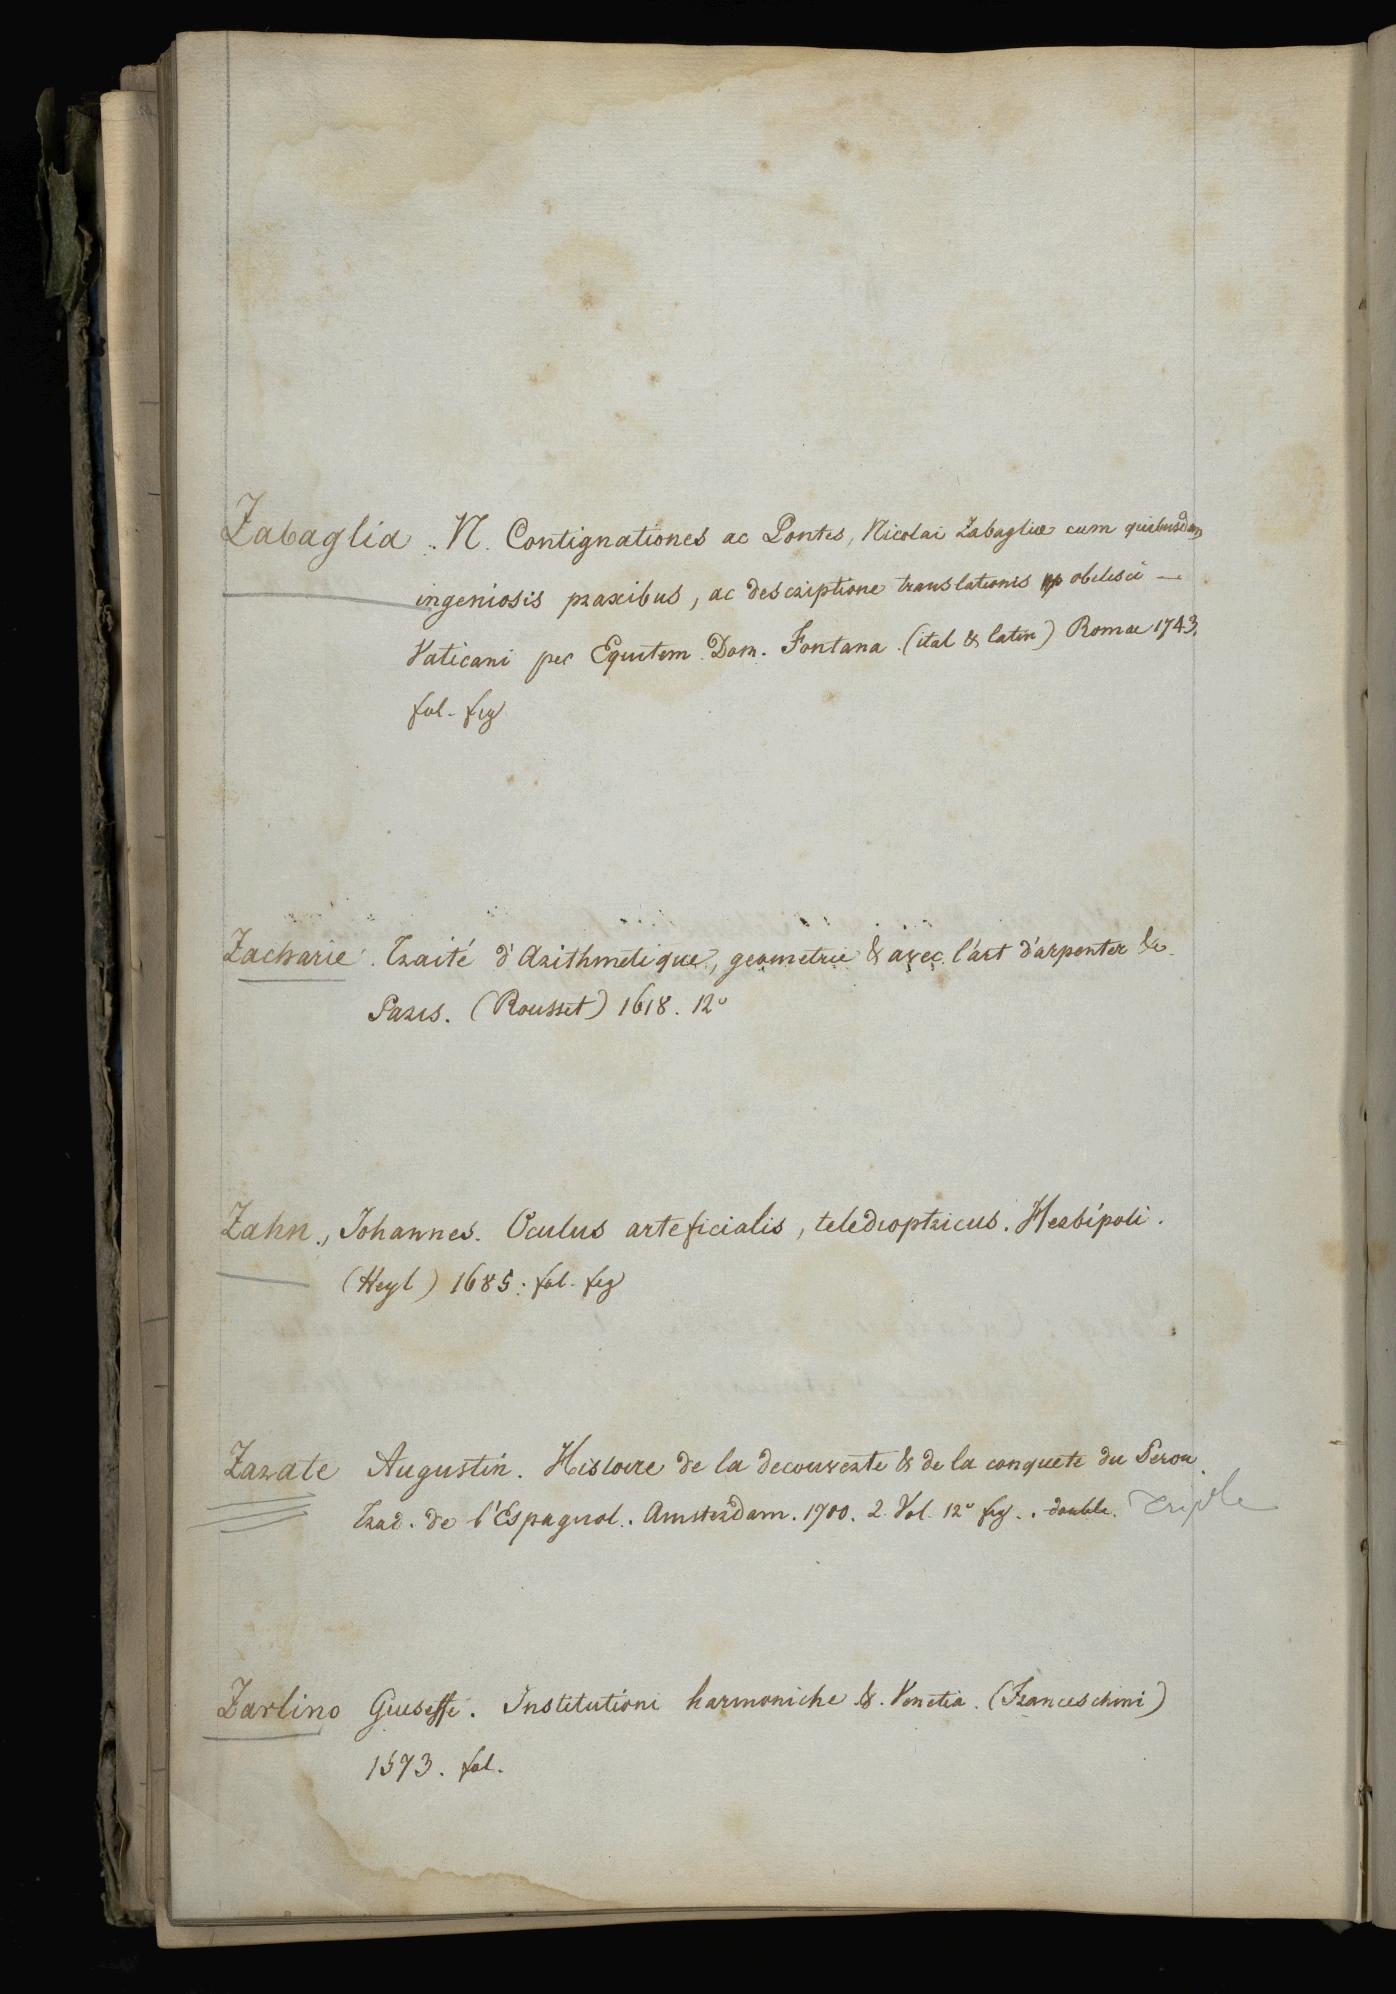 Zabaglia . N. Contignationes ac Pontes, Nicolai Zabagliæ cum quibusdam
ingeniosis praxibus, ac descriptione translationis obelisci —
Vaticani per Equitem Dom. Fontana. (ital & latin) Romae 1743.
fol. fig
Zacharie. Traité d'Arithmetique, geometrie & avec l'art d'arpenter &c.
Paris. (Rousset) 1618. 12°
Zahn., Johannes. Oculus arteficialis, teledioptricus. Herbipoli.
(Heyl) 1685. fol. fig
Zarate Augustin. Histoire de la decouverte & de la conquete du Perou
Trad. de l'Espagnol. Amsterdam. 1700. 2 Vol. 12° fig. . double. Triple
Zarlino Giuseffe. Institutioni harmoniche &. Venetia. (Franceschini)
1573. fol.